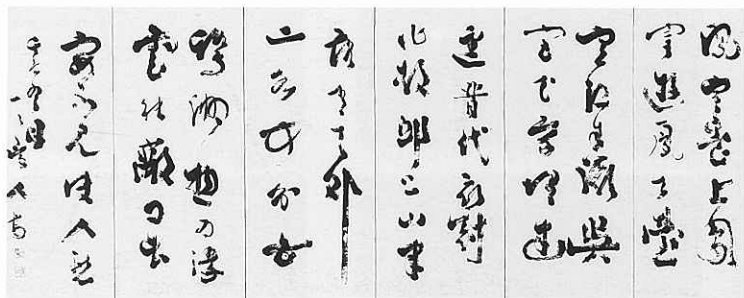 鳳凰臺上鳳
凰遊鳳去臺
空江自流吳
宮花草埋幽
逕晉代衣冠
成古邱三山半
落青天外
二水中分白
鷺洲總為浮
雲能蔽日長
安不見使人愁